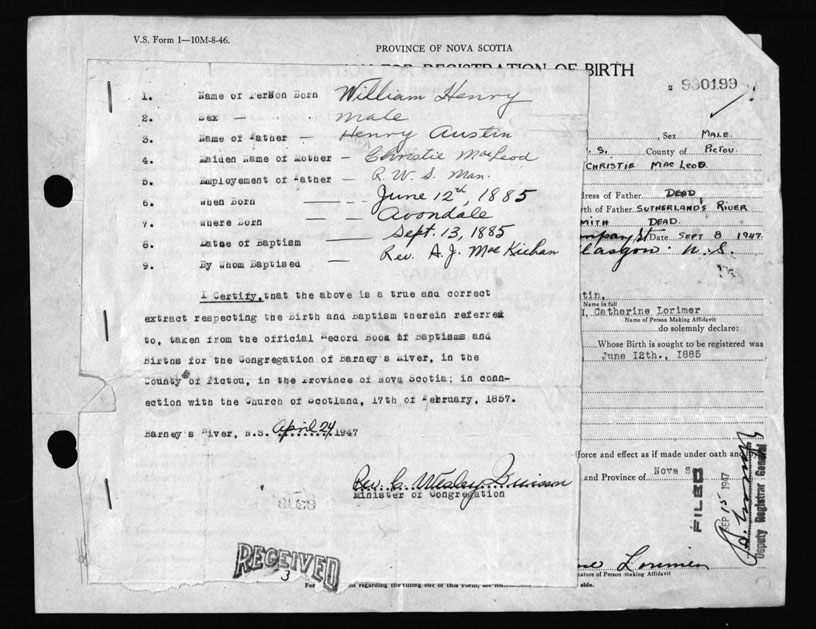 V.S. Form 1—10M-8-46.
PROVINCE OF NOVA SCOTIA
FOR REGISTRATION OF BIRTH
990199
1. Name of Person Born William Henry
2. Sex — male
3. Name of Father — Henry Austin
4. Maiden Name of Mother — Christie MacLeod
5. Employement of Father — R. W. S. Man.
6. When Born — June 12th, 1885
7. Where Born — Avondale
8. Date of Baptism — Sept. 13, 1885
9. By Whom Baptised — Rev. A. J. MacKichan
I Certify, that the above is a true and correct
extract respecting the Birth and Baptism therein referred
to, taken from the official Record Book of Baptisms and
Births for the Congregation of Barney's River, in the
County of Pictou, in the Province of Nova Scotia; in conn-
ection with the Church of Scotland, 17th of February, 1857.
Barney's River, N.S. April 24, 1947
Rev. C. Wesley
Minister of Congregation
RECEIVED
3
, Sex MALE.
S. County of PICTOU.
CHRISTIE MAC LEOD.
dress of Father DEAD
rth of Father SUTHERLAND'S RIVER
MITH DEAD.
mpany St Date SEPT 8 1947.
lasgow. N.S.
tin,
Name in full
I, Catherine Lorimer
Name of Person Making Affidavit
do solemnly declare:
Whose Birth is sought to be registered was
June 12th., 1885
force and effect as if made under oath and
and Province of Nova S
FILED
SEP 15 1947
Deputy Registrar General
ne Lorimer
nature of Person making Affidavit
For regarding the filling out of this Form, see
side.